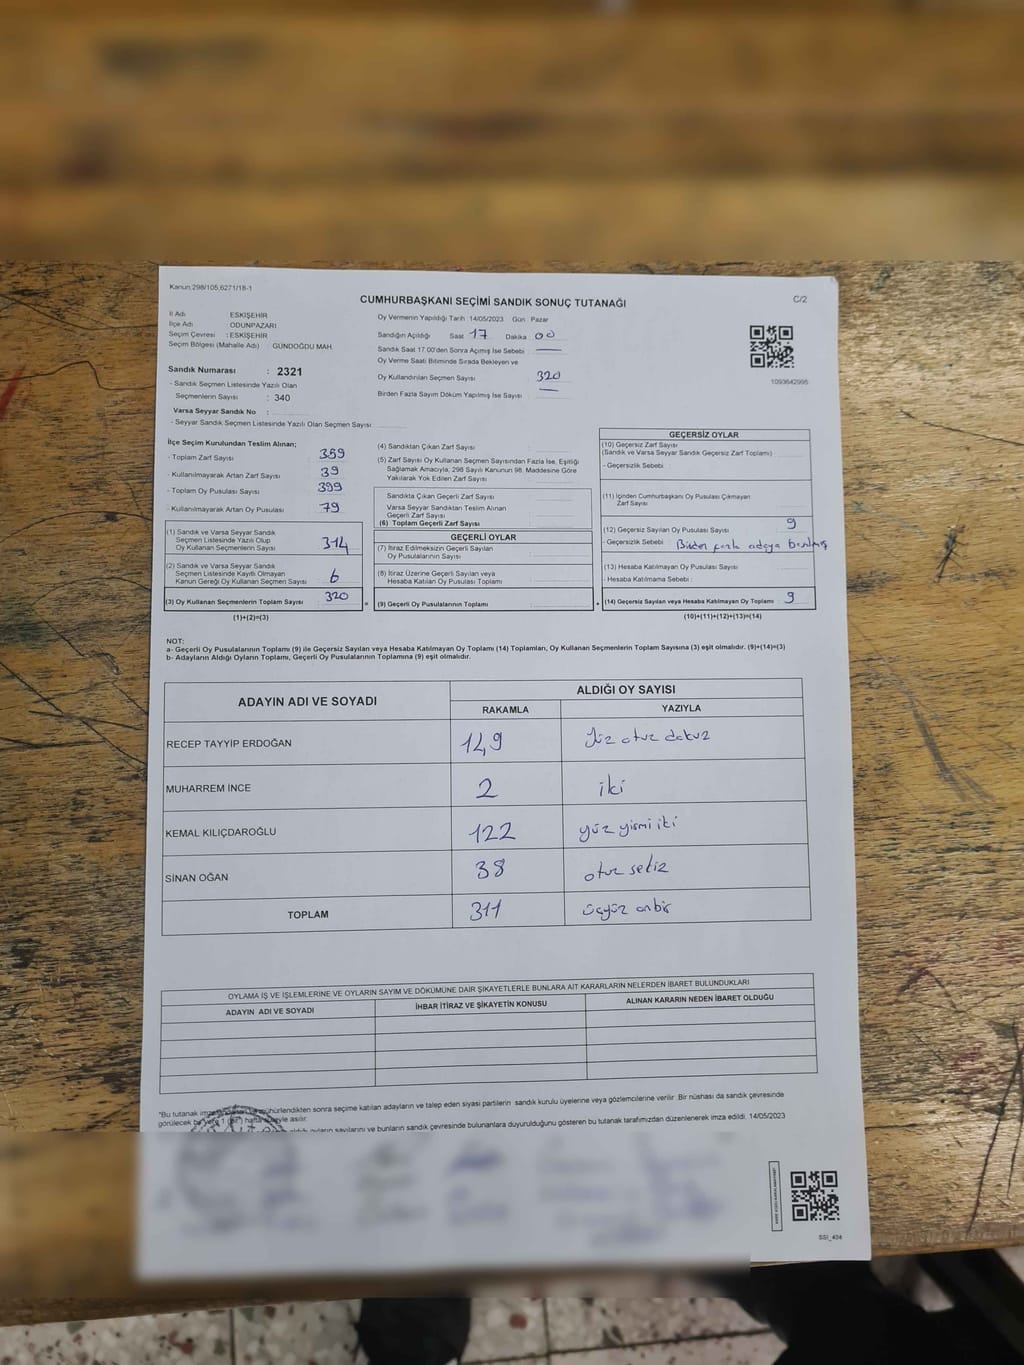 Kanun:298/105,6271/18-1
CUMHURBAŞKANI SEÇİMİ SANDIK SONUÇ TUTANAĞI
C/2
İl Adı : ESKİŞEHİR
İlçe Adı : ODUNPAZARI
Seçim Çevresi : ESKİŞEHİR
Seçim Bölgesi (Mahalle Adı) : GÜNDOĞDU MAH.
Sandık Numarası : 2321
- Sandık Seçmen Listesinde Yazılı Olan
Seçmenlerin Sayısı : 340
Varsa Seyyar Sandık No :
- Seyyar Sandık Seçmen Listesinde Yazılı Olan Seçmen Sayısı:
Oy Vermenin Yapıldığı Tarih :14/05/2023 Gün : Pazar
Sandığın Açıldığı Saat : 17 Dakika : 00
Sandık Saat 17.00'den Sonra Açılmış İse Sebebi : —
Oy Verme Saati Bitiminde Sırada Bekleyen ve
Oy Kullandırılan Seçmen Sayısı : 320
Birden Fazla Sayım Döküm Yapılmış İse Sayısı : —
1093642995
İlçe Seçim Kurulundan Teslim Alınan;
- Toplam Zarf Sayısı : 359
- Kullanılmayarak Artan Zarf Sayısı : 39
- Toplam Oy Pusulası Sayısı : 399
- Kullanılmayarak Artan Oy Pusulası : 79
(1) Sandık ve Varsa Seyyar Sandık
Seçmen Listesinde Yazılı Olup
Oy Kullanan Seçmenlerin Sayısı : 314
(2) Sandık ve Varsa Seyyar Sandık
Seçmen Listesinde Kayıtlı Olmayan
Kanun Gereği Oy Kullanan Seçmen Sayısı : 6
(3) Oy Kullanan Seçmenlerin Toplam Sayısı : 320
(1)+(2)=(3)
=
(4) Sandıktan Çıkan Zarf Sayısı :
(5) Zarf Sayısı Oy Kullanan Seçmen Sayısından Fazla İse, Eşitliği
Sağlamak Amacıyla, 298 Sayılı Kanunun 98. Maddesine Göre
Yakılarak Yok Edilen Zarf Sayısı :
Sandıkta Çıkan Geçerli Zarf Sayısı :
Varsa Seyyar Sandıktan Teslim Alınan
Geçerli Zarf Sayısı :
(6) Toplam Geçerli Zarf Sayısı :
GEÇERLİ OYLAR
(7) İtiraz Edilmeksizin Geçerli Sayılan
Oy Pusulalarının Sayısı :
(8) İtiraz Üzerine Geçerli Sayılan veya
Hesaba Katılan Oy Pusulası Toplamı :
(9) Geçerli Oy Pusulalarının Toplamı :
+
GEÇERSİZ OYLAR
(10) Geçersiz Zarf Sayısı
(Sandık ve Varsa Seyyar Sandık Geçersiz Zarf Toplamı) :
- Geçersizlik Sebebi :
(11) İçinden Cumhurbaşkanı Oy Pusulası Çıkmayan
Zarf Sayısı :
(12) Geçersiz Sayılan Oy Pusulası Sayısı : 9
- Geçersizlik Sebebi : Birden fazla adaya basılmış
(13) Hesaba Katılmayan Oy Pusulası Sayısı :
- Hesaba Katılmama Sebebi :
(14) Geçersiz Sayılan veya Hesaba Katılmayan Oy Toplamı : 9
(10)+(11)+(12)+(13)=(14)
NOT:
a- Geçerli Oy Pusulalarının Toplamı (9) ile Geçersiz Sayılan veya Hesaba Katılmayan Oy Toplamı (14) Toplamları, Oy Kullanan Seçmenlerin Toplam Sayısına (3) eşit olmalıdır. (9)+(14)=(3)
b- Adayların Aldığı Oyların Toplamı, Geçerli Oy Pusulalarının Toplamına (9) eşit olmalıdır.
ADAYIN ADI VE SOYADI
ALDIĞI OY SAYISI
RAKAMLA YAZIYLA
RECEP TAYYİP ERDOĞAN 149 Yüz otuz dokuz
MUHARREM İNCE 2 iki
KEMAL KILIÇDAROĞLU 122 yüz yirmi iki
SİNAN OĞAN 38 otuz sekiz
TOPLAM 311 üçyüz onbir
OYLAMA İŞ VE İŞLEMLERİNE VE OYLARIN SAYIM VE DÖKÜMÜNE DAİR ŞİKAYETLERLE BUNLARA AİT KARARLARIN NELERDEN İBARET BULUNDUKLARI
ADAYIN ADI VE SOYADI İHBAR İTİRAZ VE ŞİKAYETİN KONUSU ALINAN KARARIN NEDEN İBARET OLDUĞU
"Bu tutanak mühürlendikten sonra seçime katılan adayların ve talep eden siyasi partilerin sandık kurulu üyelerine veya gözlemcilerine verilir. Bir nüshası da sandık çevresinde
görülecek bir yere 1 (bir) hafta asılır.
oyların sayılarını ve bunların sandık çevresinde bulunanlara duyurulduğunu gösteren bu tutanak tarafımızdan düzenlenerek imza edildi. 14/05/2023
SSI_404